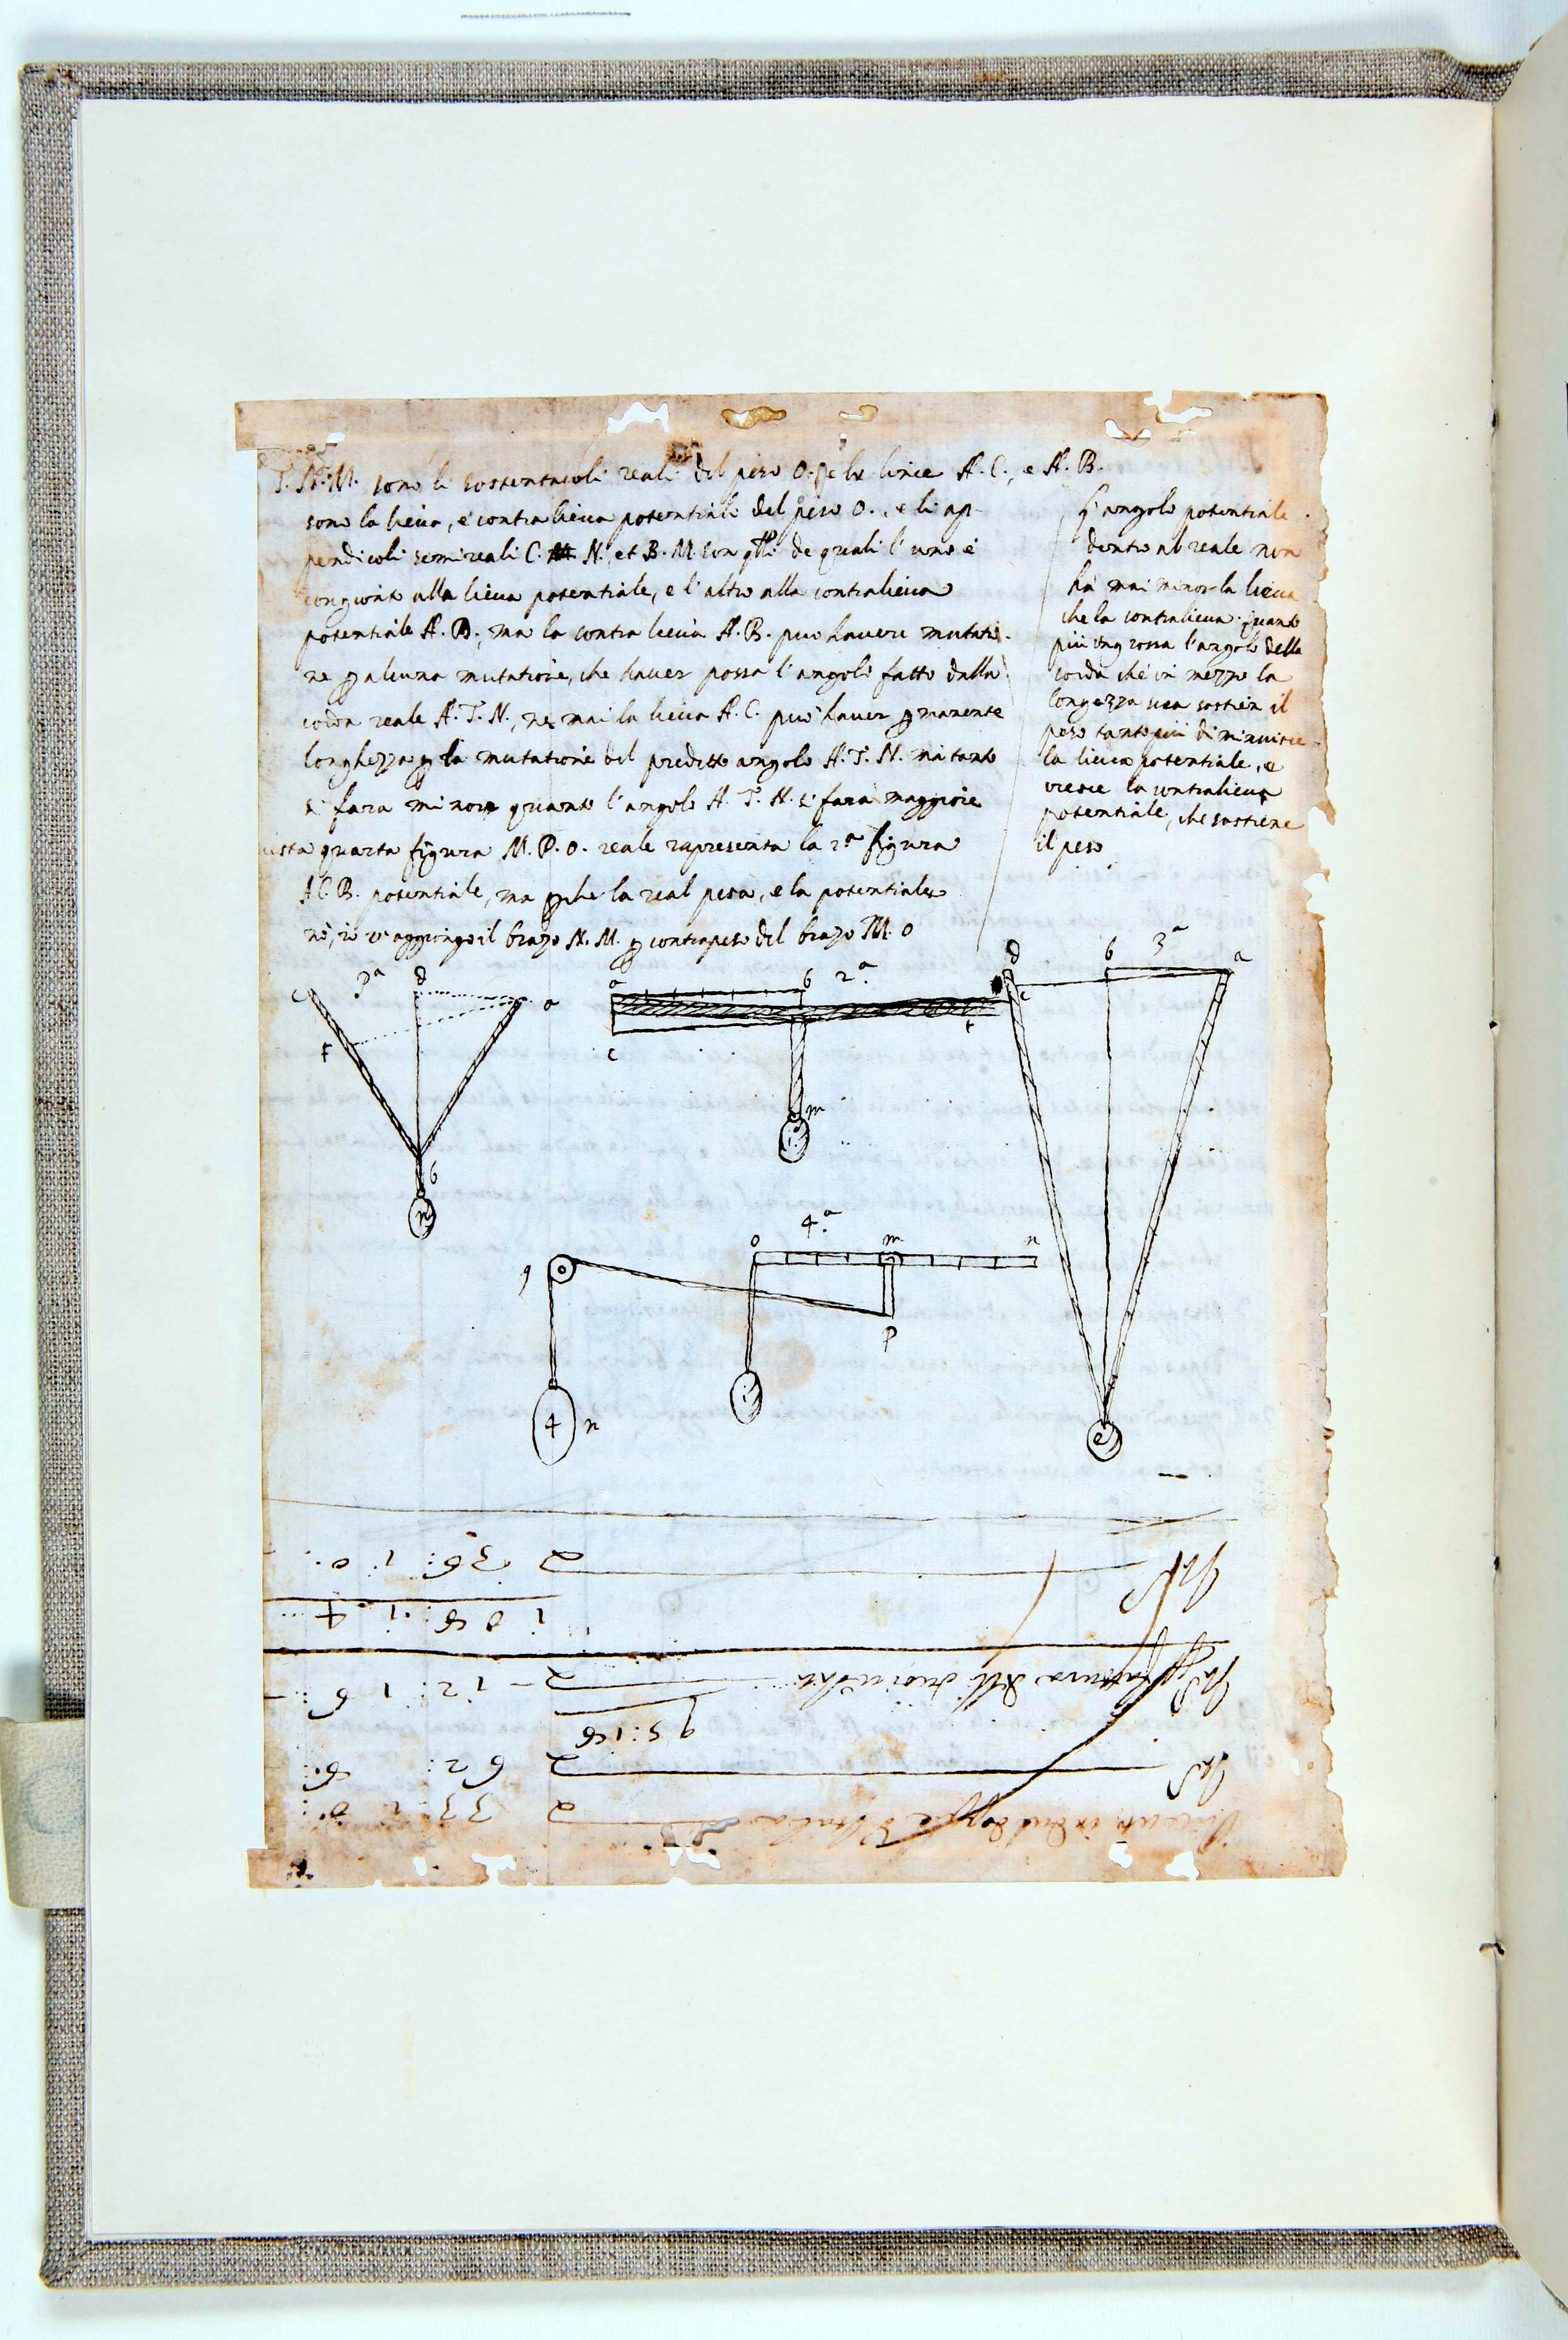 T. N. M. sono li sostentacoli reali del peso O. e le linee A. C., e A. B.
sono la lieva, e contra lieva potentiale del peso O., e li ap-
pendicoli semireali C. N. et B. M. son de quali l'uno è
congionto alla lieva potentiale, e l'altro alla contralieva
potentiale A. B.; ma la contra lieva A. B. può havere mutatio-
ne ꝑ alcuna mutatione, che haver possa l'angolo fatto dalla
corda reale A. T. N., ne mai la lieva A. C. può haver ꝑmanente
longhezza ꝑ la mutatione del predetto angolo A. T. N. ma tanto
si fara minore quanto l'angolo A. T. N. si fara maggiore
quarta figura M. P. O. reale rapresenta la 2.ª figura
A C. B. potentiale, ma ꝑche la real pesa, e la potentiale
nò, io v'aggiongo il brazo N. M. ꝑ contrapeso del brazo M. O
L'angolo potentiale
dentro al reale non
hà mai minor la lieva
che la contralieva. Quanto
più ingrossa l'angolo della
corda che in mezzo la
longezza sua sostien il
peso tanto più diminuisce
la lieva potentiale, e
cresce la contralieva
potentiale, che sostiene
il peso
3ª
c
d
a
f
b
n
2.ª
a
b
c
f
m
3ª
d
b
a
c
e
4.ª
o
m
n
q
p
4
n
1
2 33
2 62: 6:
95:18
2 - 12: 1 6
108: 1: 4
2 36: 1: 0